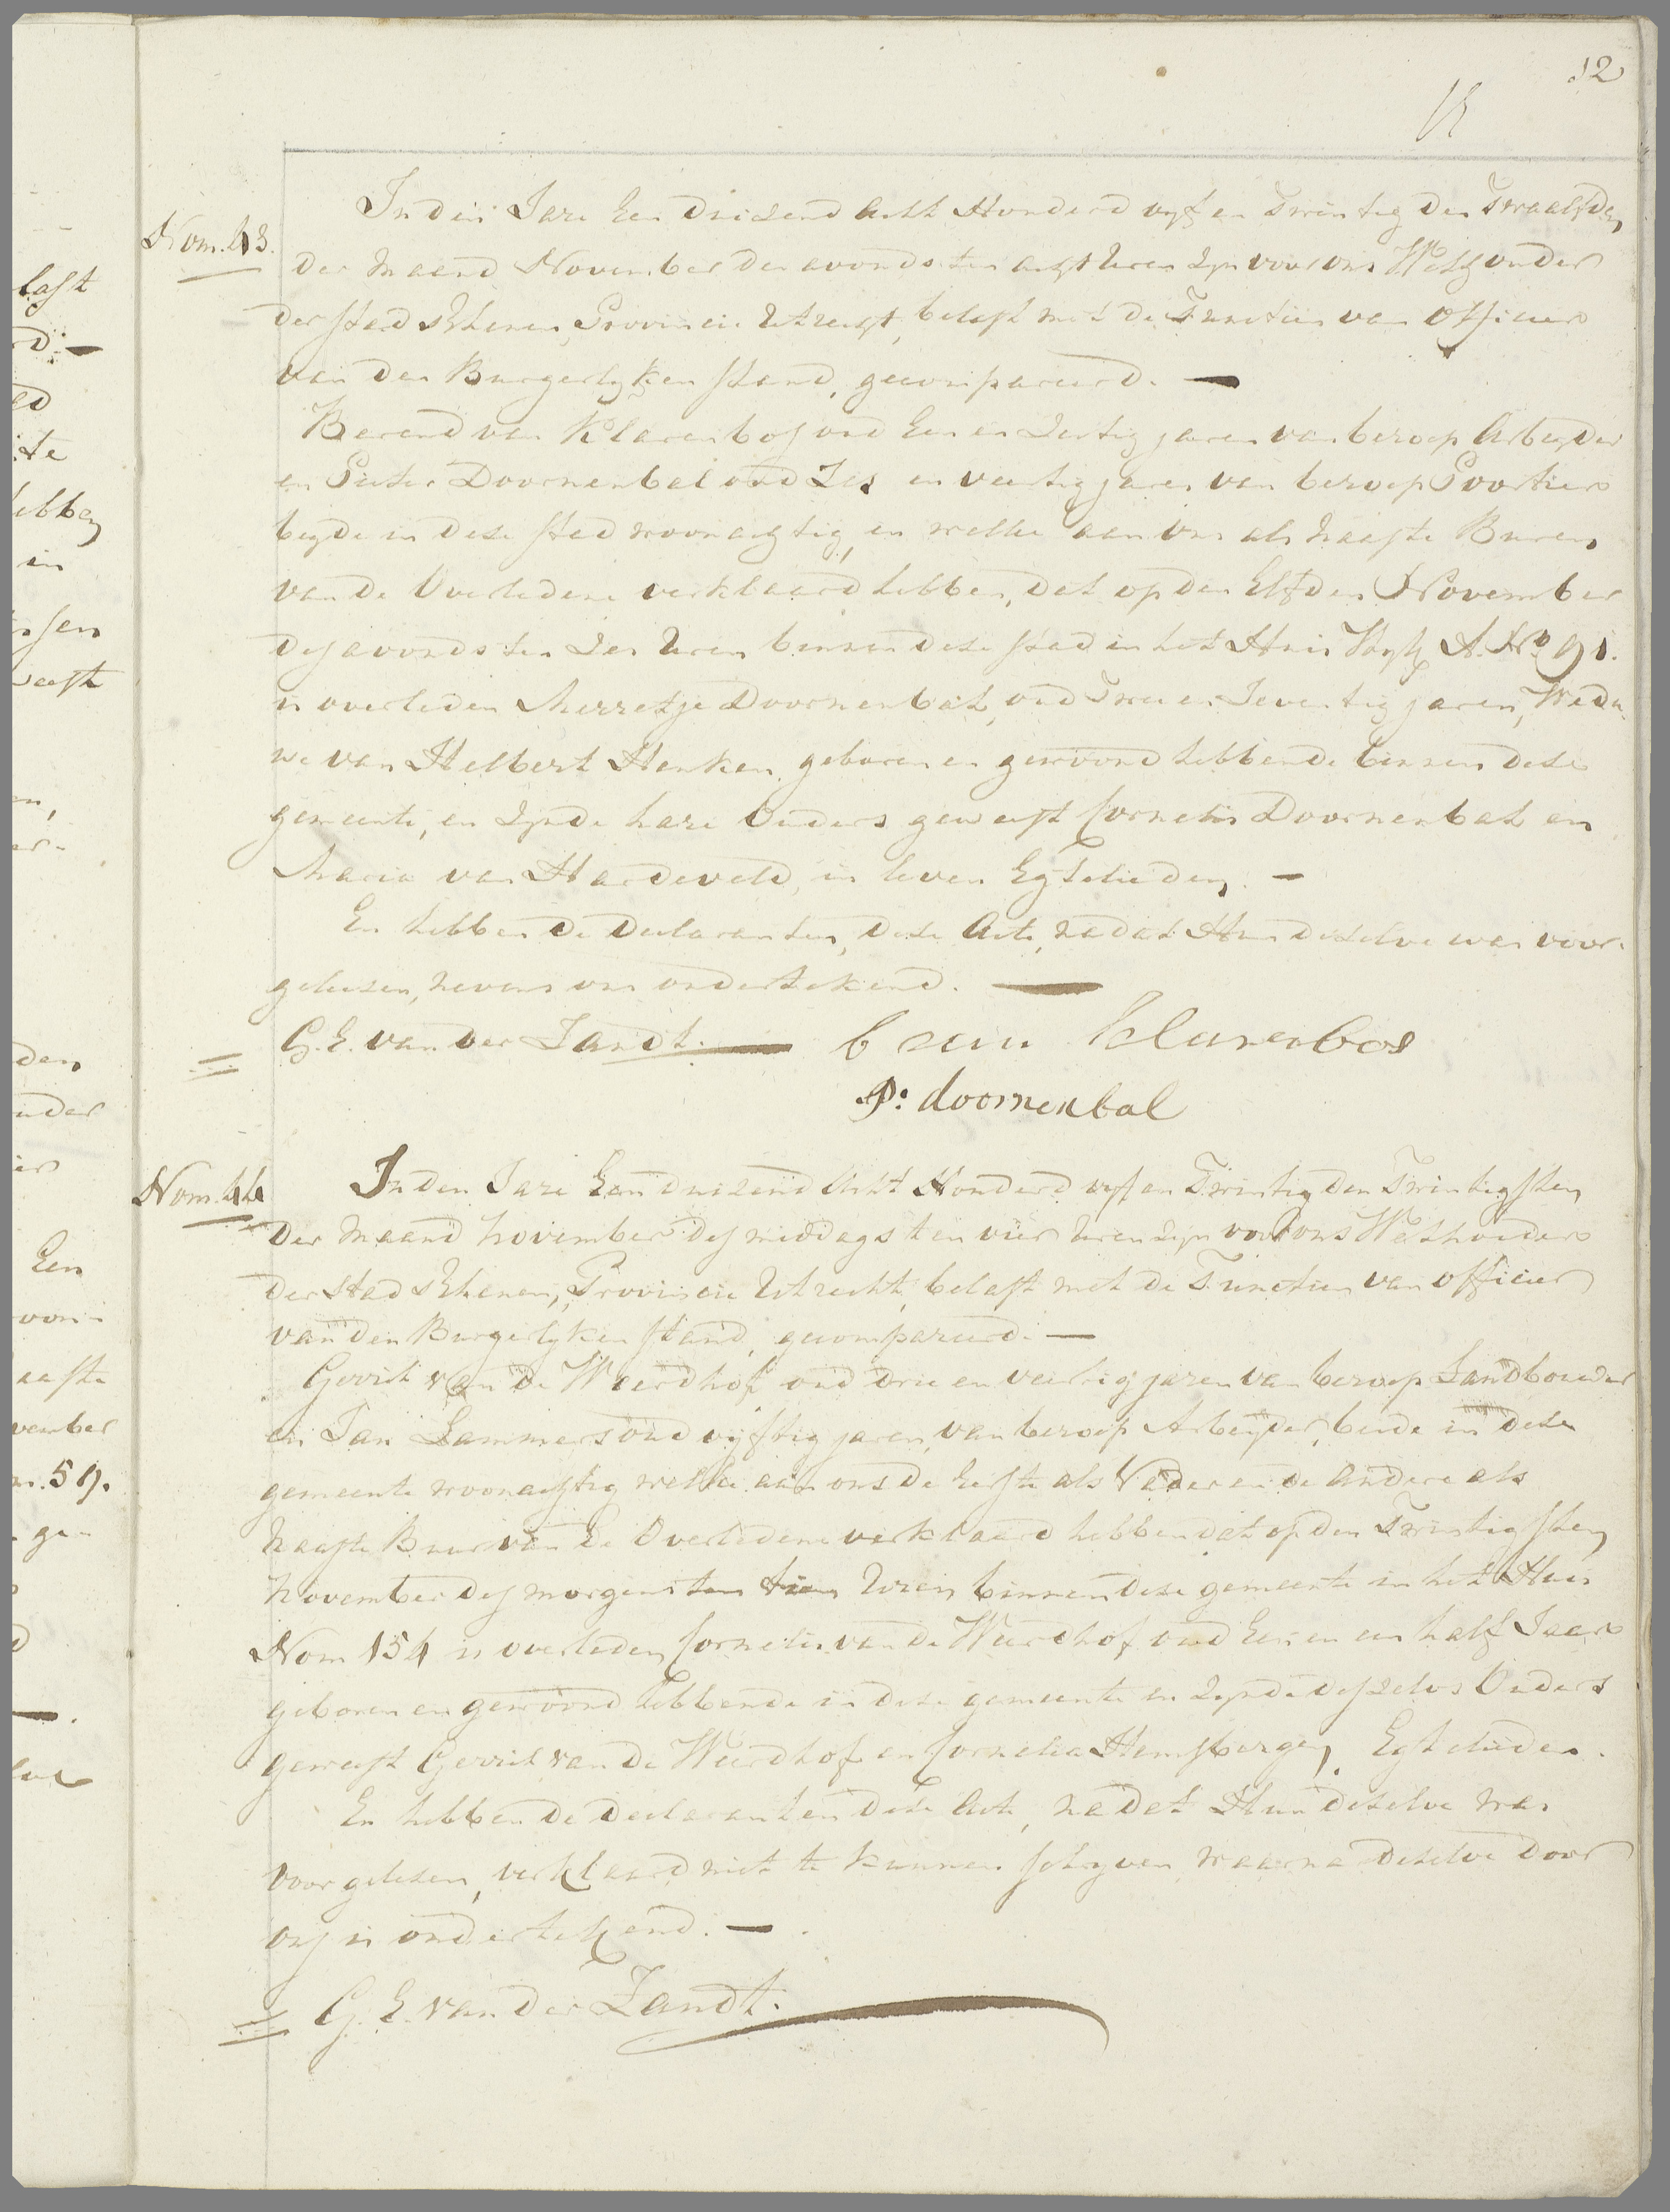 12
Nom. 43.
In den Jare Een duisend Acht Honderd vyf en Twintig den Twaalfden
der Maand November des avonds ten acht Uren zyn voor ons Wethouder
der Stad Rhenen, Provincie Utrecht, belast met de Functien van Officier
van den Burgerlyken stand, gecompareerd. —
Barend van Klarenbos oud Een en Dertig jaren van beroep Arbeyder
en Pieter Doornenbal oud Zes en veertig jaren van beroep Poortier
beyde in dese stad woonagtig, en welke aan ons als naaste Buren
van de Overledene verklaard hebben, dat op den Elfden November
des avonds ten Zes Uren binnen dese stad in het Huis Wyk A. No. 91.
is overleden Merretje Doornenbal, oud Twee en Seventig jaren, Wedu-
we van Helbert Henken, geboren en gewoond hebbende binnen dese
gemeente, en zynde hare Ouders geweest Cornelis Doornenbal en
Maria van Hardeveld, in leven Egtelieden. —
En hebben de Declaranten, dese Acte, nadat Hun deselve was voor-
gelesen, nevens ons ondertekend. —
G. E. van der Zandt. — b van klarenbos
P: doornenbal
Nom. 44
In den Jare Een duizend Acht Honderd vyf en Twintig den Twintigsten
der Maand November des middags ten vier Uren zyn voor ons Wethouder
der Stad Rhenen, Provincie Utrecht, belast met de Functien van Officier
van den Burgerlyken stand, gecompareerd. —
Gerrit van de Weerdhof oud drie en veertig jaren van beroep Landbouwer
en Jan Lammers oud vyftig jaren, van beroep Arbeyder, beide in dese
gemeente woonagtig welke aan ons de Eerste als Vader en de Andere als
naaste Buur van de Overledene verklaard hebben dat op den Twintigsten
November des morgens ten tien Uren binnen dese gemeente in het Huis
Nom 154 is overleden Cornelis van de Weerdhof oud Een en een half Jaar
geboren en gewoond hebbende in dese gemeente en zynde deszelvs Ouders
geweest Gerrit van de Weerdhof en Cornelia Hemsbergen, Egtelieden.
En hebben de Declaranten dese Acte, nadat Hun deselve was
voorgelesen, verklaard niet te kunnen schryven, waarna deselve door
ons is ondertekend. —
G. E. van der Zandt.